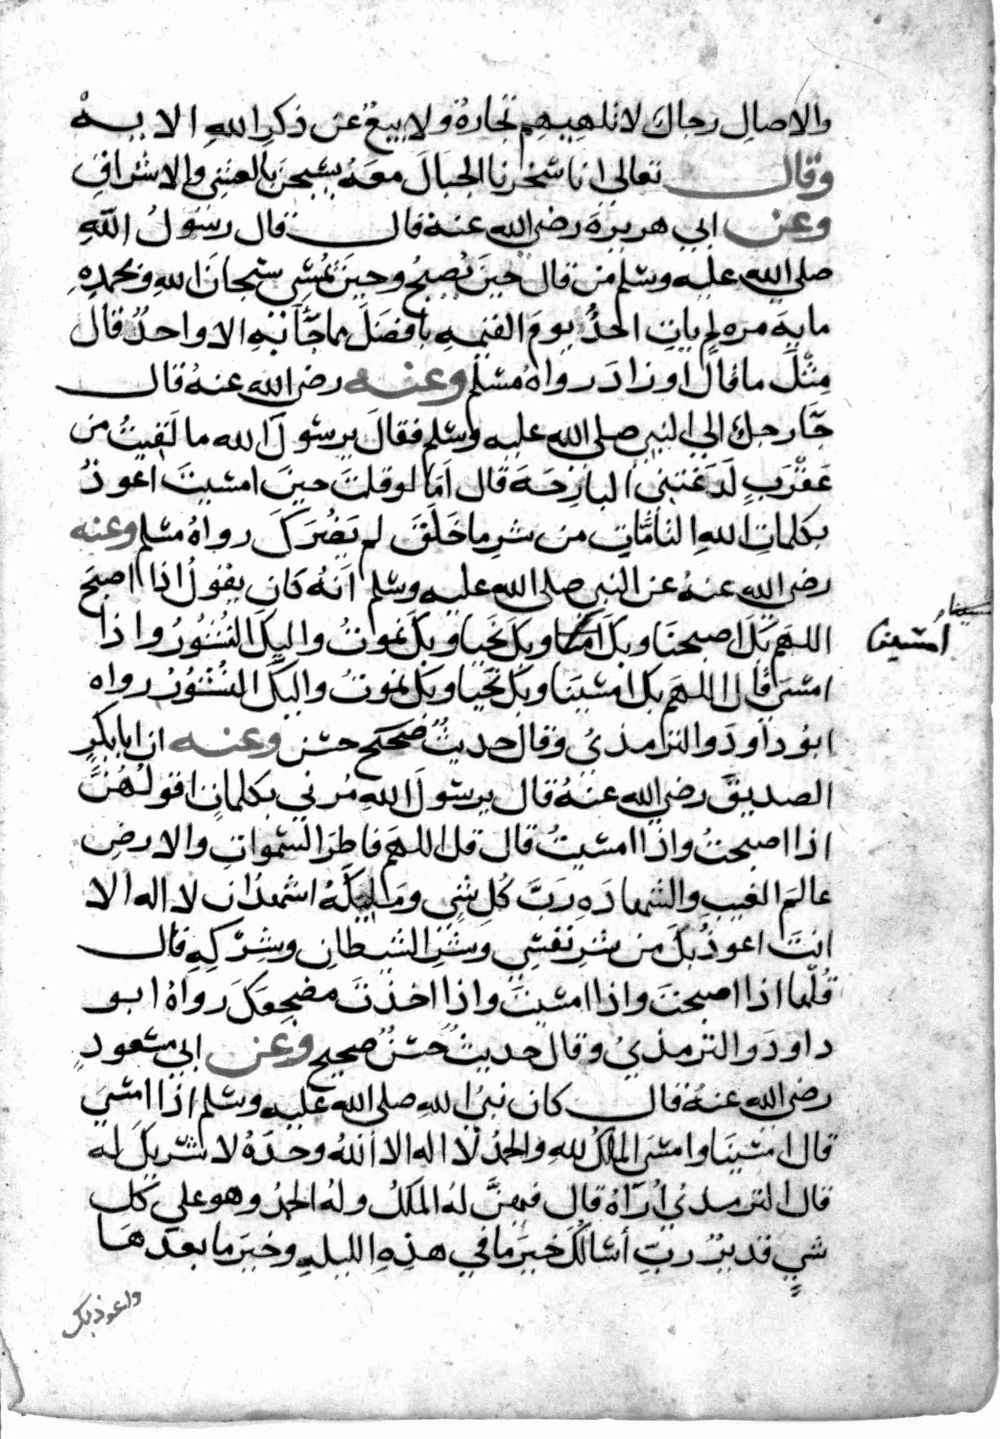 والاصال رجال لا تلهيهم تجارة ولا بيع عن ذكر الله الايه
وقال تعالى انا سخرنا الجبال معه يسبحن بالعشي والاشراق
وعن ابي هريرة رضي الله عنه قال قال رسول الله
صلى الله عليه وسلم من قال حين يصبح وحين يمسي سبحان الله وبحمده
ماية مره لم يات احد يوم القيمه بافضل مما جآ به الا واحد قال
مثل ما قال او زاد رواه مسلم وعنه رضي الله عنه قال
جآ رجل الي النبي صلى الله عليه وسلم فقال يرسول الله ما لقيت من
عقرب لدغتني البارحة قال اما لو قلت حين امسيت اعوذ
بكلمات الله التامات من شر ما خلق لم يضرك رواه مسلم وعنه
رضي الله عنه عن النبي صلى الله عليه وسلم انه كان يقول اذا اصبح
اللهم بك اصبحنا وبك وبك نحيا وبك نموت واليك النشور واذا
امسينا
امسى قال اللهم بك امسينا وبك نحيا وبك نموت واليك النشور رواه
ابو داود والترمذي وقال حديث صحيح حسن وعنه ان ابا بكر
الصديق رضي الله عنه قال يرسول الله مرني بكلمات اقولهن
اذا اصبحت واذا امسيت قال قل اللهم فاطر السموات والارض
عالم الغيب والشهاده رب كل شي ومليكه اشهد ان لا اله الا
انت اعوذ بك من شر نفسي وشر الشيطان وشركه قال
قلها اذا اصبحت واذا امسيت واذا اخذت مضجعك رواه ابو
داود والترمذي وقال حديث حسن صحيح وعن ابي مسعود
رضي الله عنه قال كان نبي الله صلى الله عليه وسلم اذا امسي
قال امسينا وامسى الملك لله والحمد لله لا اله الا الله وحده لا شريك له
قال الترمذي اراه قال فيهن له الملك وله الحمد وهو علي كل
شي قدير رب أسالك خير ما في هذه الليله وخير ما بعدها
واعوذ بك